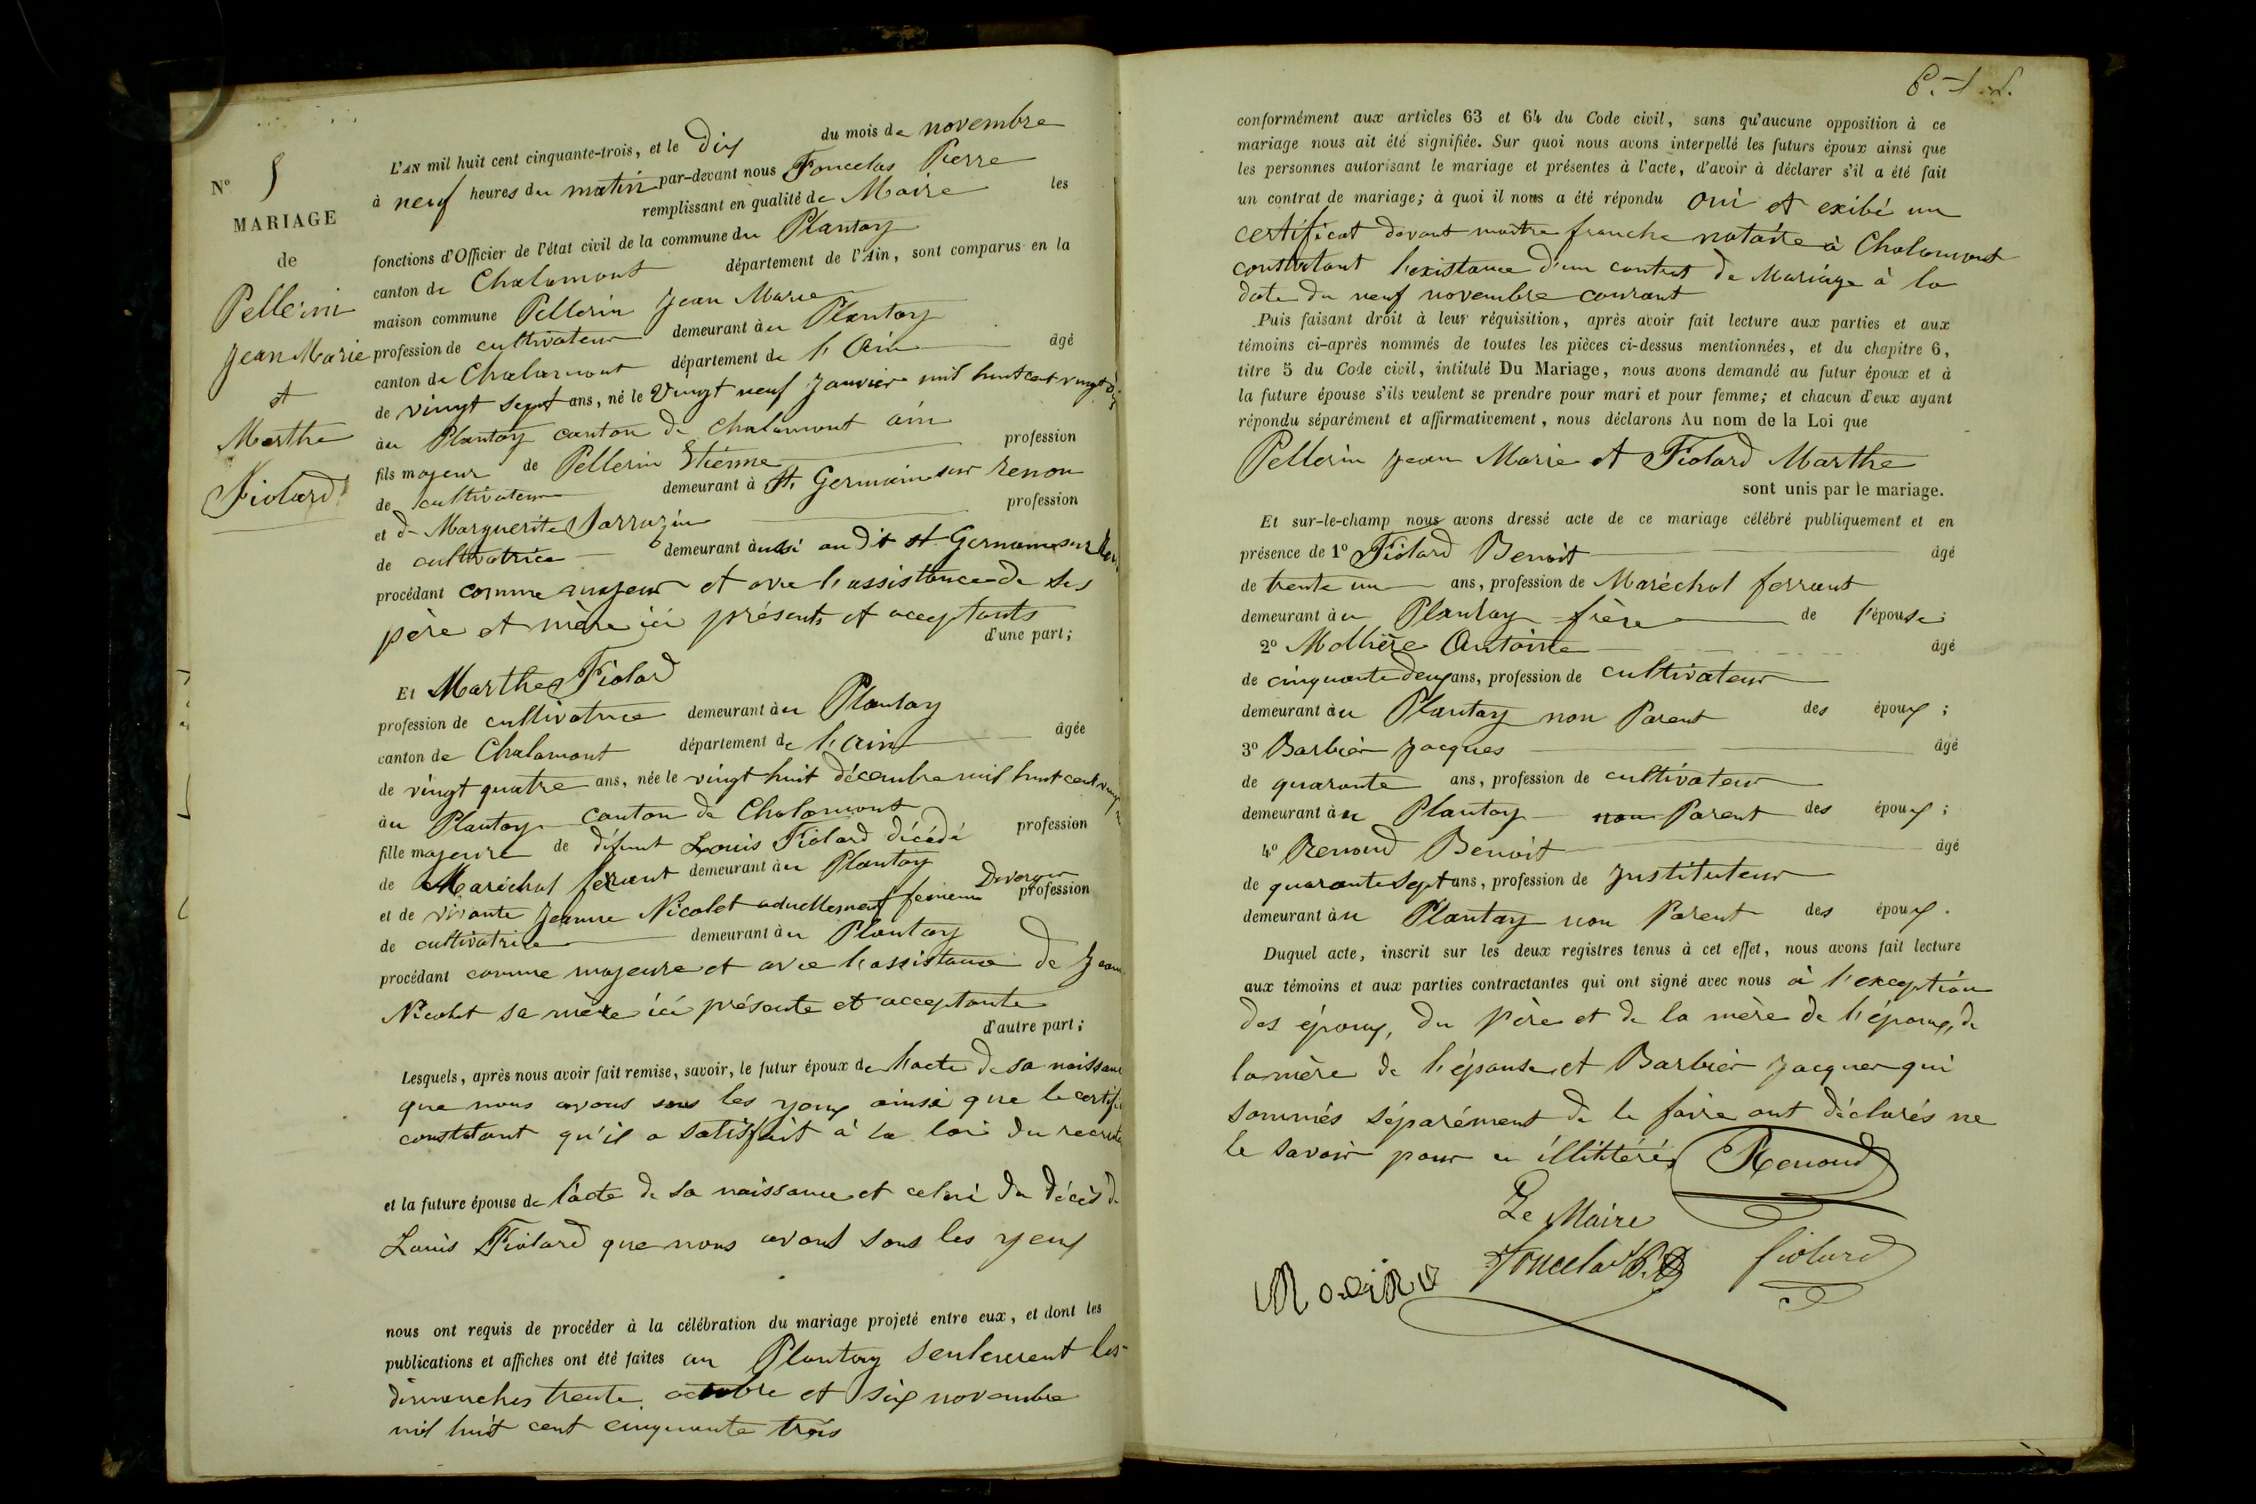 N° 5
MARIAGE
de
Pellerin
Jean Marie
et
Marthe
Fiolard
L'AN mil huit cent cinquante-trois, et le Dix du mois de novembre
à neuf heures du matin par-devant nous Foncelas Pierre
remplissant en qualité de Maire les
fonctions d'Officier de l'état civil de la commune du Plantay
canton de Chalamont département de l'Ain, sont comparus en la
maison commune Pellerin Jean Marie
profession de cultivateur demeurant au Plantay
canton de Chalamont département de l'Ain âgé
de vingt sept ans, né le Vingt neuf Janvier mil huit cent vingt
au Plantay canton de chalamont ain
fils majeur de Pellerin Etienne profession
de cultivateur demeurant à St Germain sur Renon
et de Marguerite Sarrazin profession
de cultivatrice demeurant aussi au dit st Germain sur
procédant comme majeur et avec l'assistance de ses
père et mère ici présents et acceptants
d'une part;
Et Marthe Fiolard
profession de cultivatrice demeurant au Plantay
canton de Chalamont département de l'Ain âgée
de vingt quatre ans, née le vingt huit décembre mil huit cent
au Plantay canton de Chalamont
fille majeure de défunt Louis Fiolard décédé profession
de Maréchal ferrant demeurant au Plantay
et de vivante Jeanne Nicolet actuellement femme profession
de cultivatrice demeurant au Plantay
procédant comme majeure et avec l'assistance de Jeanne
Nicolet sa mère ici présente et acceptante
d'autre part;
Lesquels, après nous avoir fait remise, savoir, le futur époux de l'acte de sa naissance
que nous avons sous les yeux ainsi que le certifi
constatant qu'il a satisfait à la loi du recrute
et la future épouse de l'acte de sa naissance et celui du décès de
Louis Fiolard que nous avons sous les yeux
nous ont requis de procéder à la célébration du mariage projeté entre eux, et dont les
publications et affiches ont été faites au Plantay seulement les
dimanches trente octobre et six novembre
mil huit cent cinquante trois
conformément aux articles 63 et 64 du Code civil, sans qu'aucune opposition à ce
mariage nous ait été signifiée. Sur quoi nous avons interpellé les futurs époux ainsi que
les personnes autorisant le mariage et présentes à l'acte, d'avoir à déclarer s'il a été fait
un contrat de mariage; à quoi il nous a été répondu oui et exibé un
certificat devant maître franche notaire à Chalamont
constatant l'existance d'un contrat de Mariage à la
date du neuf novembre courant
Puis faisant droit à leur réquisition, après avoir fait lecture aux parties et aux
témoins ci-après nommés de toutes les pièces ci-dessus mentionnées, et du chapitre 6,
titre 5 du Code civil, intitulé Du Mariage, nous avons demandé au futur époux et à
la future épouse s'ils veulent se prendre pour mari et pour femme; et chacun d'eux ayant
répondu séparément et affirmativement, nous déclarons Au nom de la Loi que
Pellerin Jean Marie et Fiolard Marthe
sont unis par le mariage.
Et sur-le-champ nous avons dressé acte de ce mariage célébré publiquement et en
présence de 1° Fiolard Benoit âgé
de trente un ans, profession de Maréchal ferrant
demeurant au Plantay frère de l'épouse;
2° Mollière Antoine âgé
de cinquante deux ans, profession de cultivateur
demeurant au Plantay non Parent des époux;
3° Barbier Jacques âgé
de quarante ans, profession de cultivateur
demeurant au Plantay non Parent des époux;
4° Renoud Benoit âgé
de quarante sept ans, profession de Instituteur
demeurant au Plantay non Parent des époux.
Duquel acte, inscrit sur les deux registres tenus à cet effet, nous avons fait lecture
aux témoins et aux parties contractantes qui ont signé avec nous à l'exception
des époux, du père et de la mère de l'époux, de
la mère de l'épouse et Barbier Jacques qui
sommés séparément de le faire ont déclarés ne
le savoir pour illittéré
Renoud
Le Maire
Foncelas fiolard